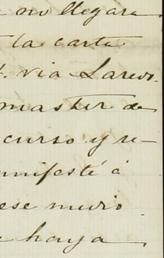 no llegara
la carta
via Laredo.
master de
curso y re-
manifesté á
ese medio
haya